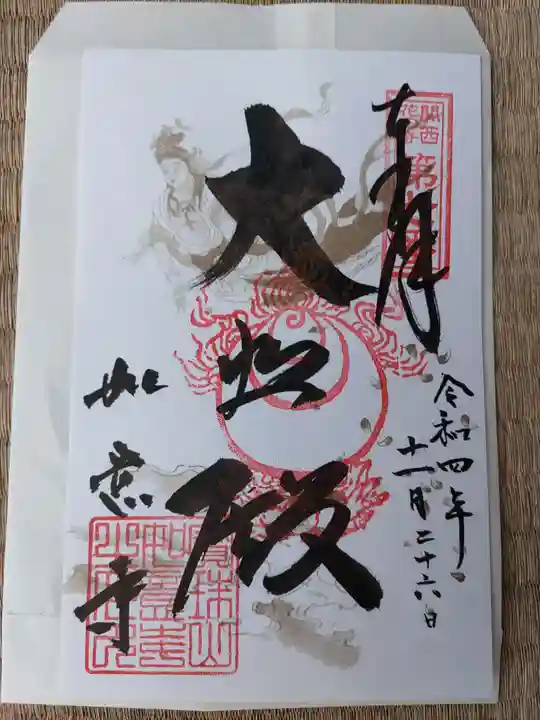 奉拝
関西
花の寺
第七番
令和四年
十一月二十六日
大悲殿
如意寺
寶珠山